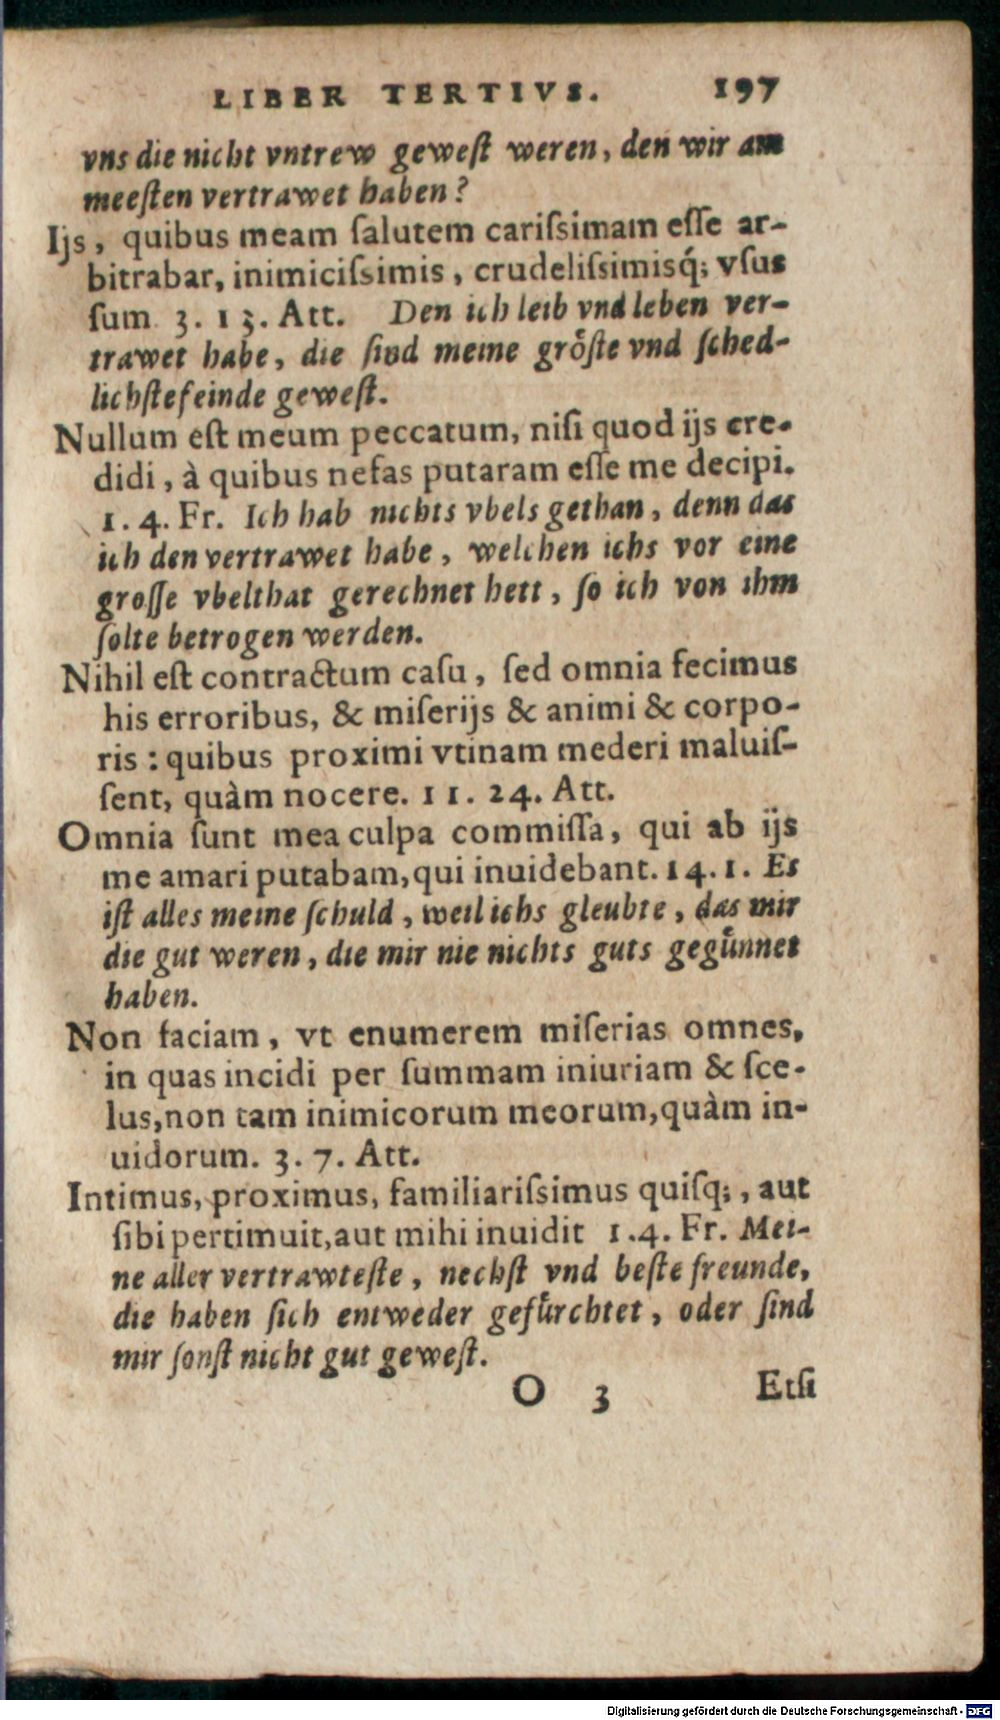 LIBER TERTIVS. 197
vns die nicht vntrew gewest weren, den wir am
meesten vertrawet haben?
Ijs, quibus meam salutem carissimam esse ar-
bitrabar, inimicissimis, crudelissimisq́; vsus
sum 3. 13. Att. Den ich leib vnd leben ver-
trawet habe, die sind meine grôste vnd sched-
lichste feinde gewest.
Nullum est meum peccatum, nisi quod ijs cre-
didi, à quibus nefas putaram esse me decipi.
1. 4. Fr. Ich hab nichts vbels gethan, denn das
ich den vertrawet habe, welchen ichs vor eine
grosse vbelthat gerechnet hett, so ich von ihm
solte betrogen werden.
Nihil est contractum casu, sed omnia fecimus
his erroribus, & miserijs & animi & corpo-
ris: quibus proximi vtinam mederi maluis-
sent, quàm nocere. 11. 24. Att.
Omnia sunt mea culpa commissa, qui ab ijs
me amari putabam, qui inuidebant. 14. 1. Es
ist alles meine schuld, weil ichs gleubte, das mir
die gut weren, die mir nie nichts guts gegůnnet
haben.
Non faciam, vt enumerem miserias omnes,
in quas incidi per summam iniuriam & sce-
lus, non tam inimicorum meorum, quàm in-
uidorum. 3. 7. Att.
Intimus, proximus, familiarissimus quisq;, aut
sibi pertimuit, aut mihi inuidit 1. 4. Fr. Mei-
ne aller vertrawteste, nechst vnd beste freunde,
die haben sich entweder gefůrchtet, oder sind
mir sonst nicht gut gewest.
O 3 Etsi
Digitalisierung gefördert durch die Deutsche Forschungsgemeinschaft - DFG